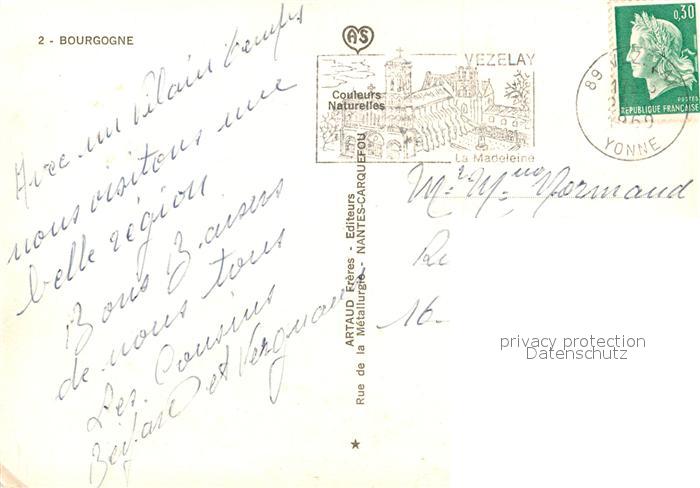 2 - BOURGOGNE
Avec un vilain temps
nous visitons une
belle région
Bons Baisers
de nous tous
Les Cousins
et Vergnaud
AS
Couleurs
Naturelles
ARTAUD Frères - Editeurs
Rue de la Métallurgie - NANTES-CARQUEFOU
VEZELAY
La Madeleine
89 VEZELAY
1969
YONNE
0,30
POSTES
REPUBLIQUE FRANÇAISE
Mr Mme Normand
16-
privacy protection
Datenschutz